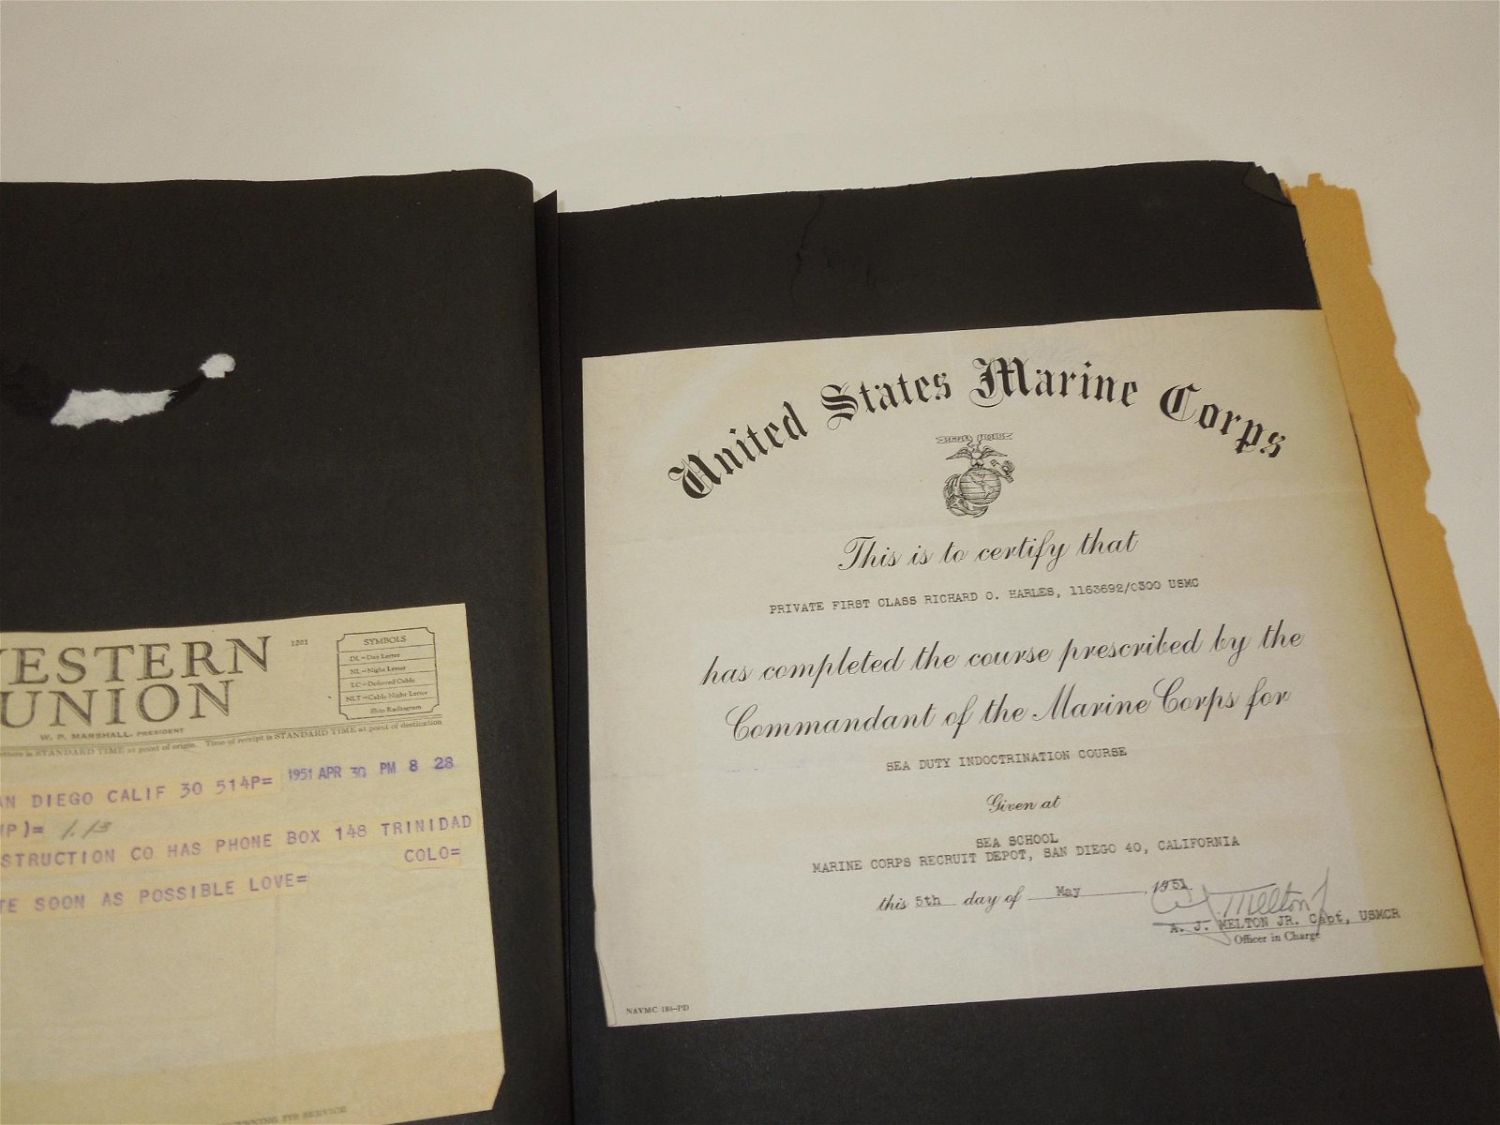 WESTERN
UNION
1201
SYMBOLS
DL=Day Letter
NL=Night Letter
LC=Deferred Cable
NLT=Cable Night Letter
Ship Radiogram
W. P. MARSHALL, PRESIDENT
STANDARD TIME at point of origin. Time of receipt is STANDARD TIME at point of destination
AN DIEGO CALIF 30 514P= 1951 APR 30 PM 8 28
)= 1.13
STRUCTION CO HAS PHONE BOX 148 TRINIDAD
COLO=
TE SOON AS POSSIBLE LOVE=
United States Marine Corps
SEMPER FIDELIS
This is to certify that
PRIVATE FIRST CLASS RICHARD O. HARLES, 1163692/0300 USMC
has completed the course prescribed by the
Commandant of the Marine Corps for
SEA DUTY INDOCTRINATION COURSE
Given at
SEA SCHOOL
MARINE CORPS RECRUIT DEPOT, SAN DIEGO 40, CALIFORNIA
this 5th day of May 1951
A. J. MELTON JR. Capt, USMCR
Officer in Charge
NAVMC 184-PD